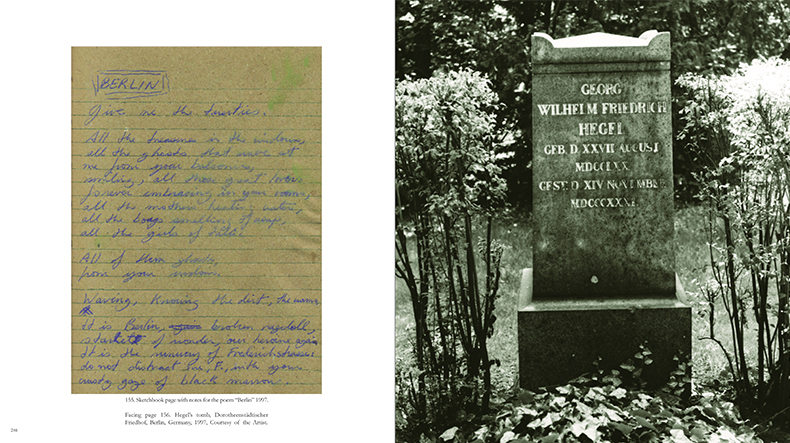 BERLIN
Give me the
All the treasures in the windows,
all the ghosts that wave at
me from your balconies,
smiling, all those great lovers
forever embracing in your rooms,
all the
all the boys smelling of soap,
all the girls of
All of them ghosts,
from your windows.
Waving, knowing the dirt, the
It is Berlin, broken ragdoll,
starlet of wonder, our heroine again
It is the memory of
do not distract Sir, P., with your
gaze of black
155. Sketchbook page with notes for the poem "Berlin" 1997.
Facing page 156. Hegel's tomb, Dorotheenstädtischer
Friedhof, Berlin, Germany, 1997, Courtesy of the Artist.
GEORG
WILHELM FRIEDRICH
HEGEL
GEB. D. XXVII AUGUST
MDCCLXX
GEST. D. XIV NOVEMBER
MDCCCXXXI.